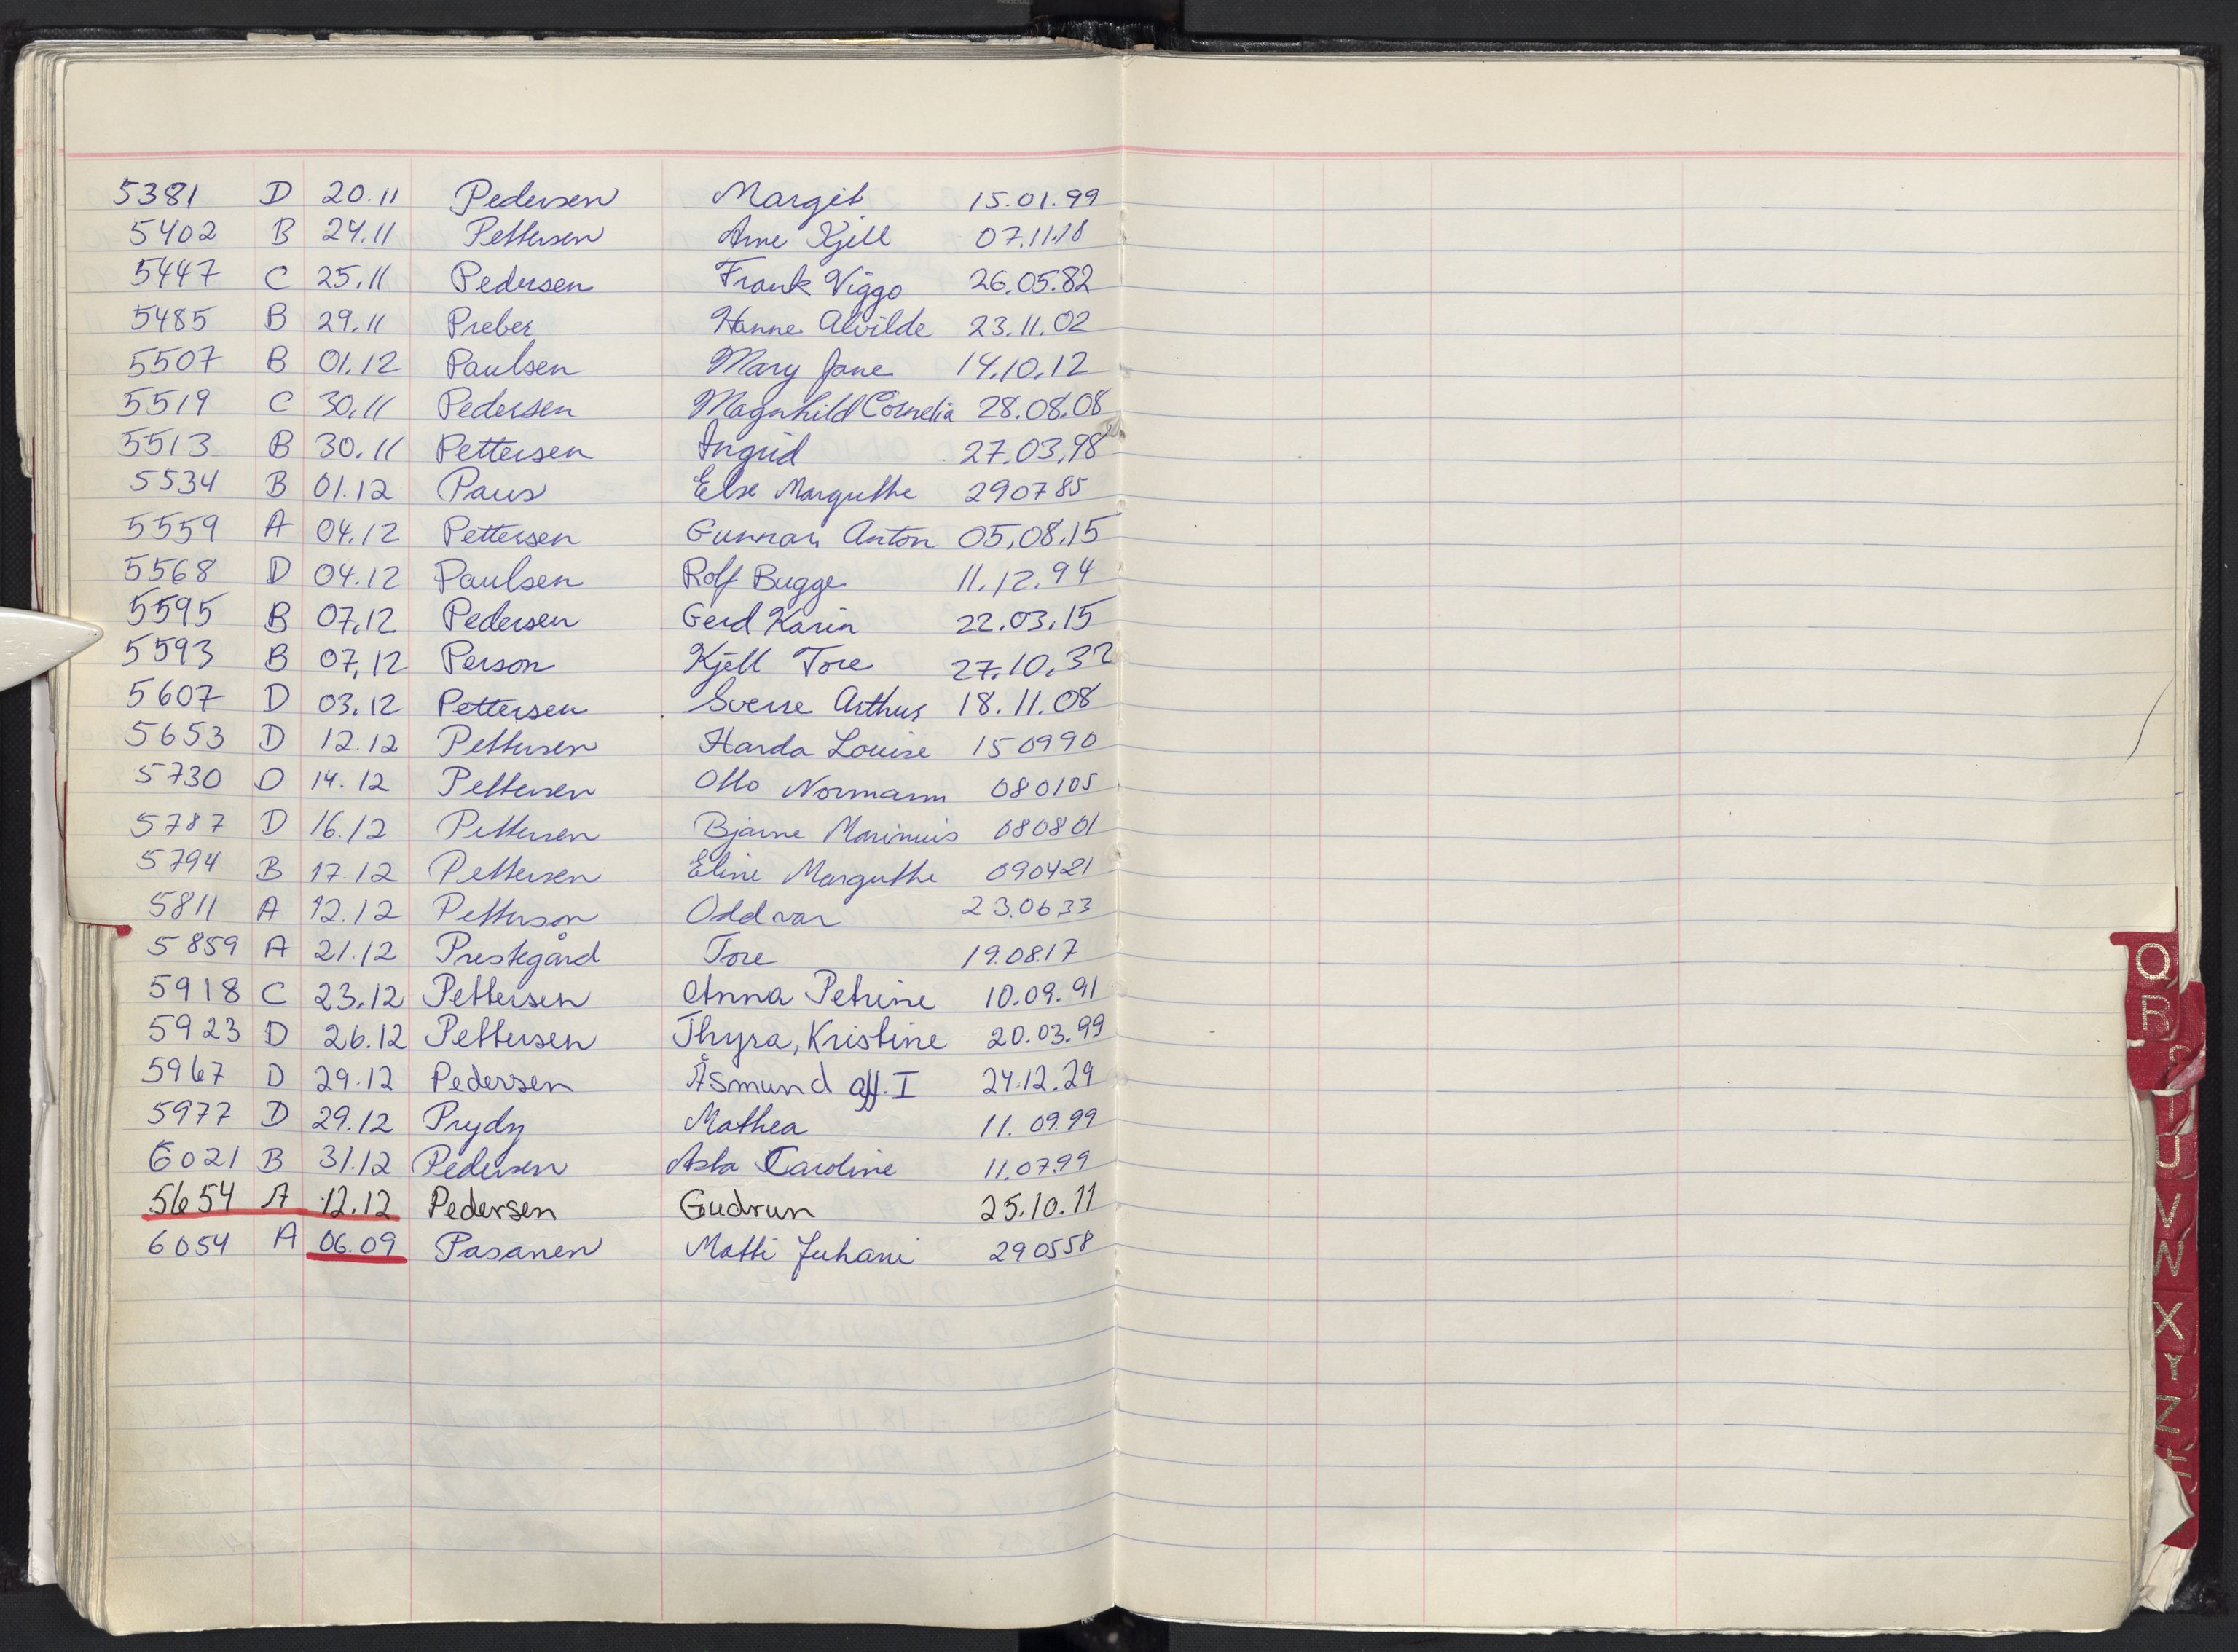 5381 D 20.11 Pedersen Margit 15.01.99
5402 B 24.11 Pettersen Arne Kjell 07.11.18
5447 C 25.11 Pedersen Frank Viggo 26.05.82
5485 B 29.11 Preber Hanne Alvilde 23.11.02
5507 B 01.12 Paulsen Mary Jane 14.10.12
5519 C 30.11 Pedersen Magnhild Cornelia 28.08.08
5513 B 30.11 Pettersen Ingrid 27.03.98
5534 B 01.12 Paus Else Margrethe 290785
5559 A 04.12 Pettersen Gunnar Anton 05.08.15
5568 D 04.12 Paulsen Rolf Bugge 11.12.94
5595 B 07.12 Pedersen Gerd Karin 22.03.15
5593 B 07.12 Person Kjell Tore 27.10.32
5607 D 03.12 Pettersen Sverre Arthur 18.11.08
5653 D 12.12 Pettersen Harda Louise 150990
5730 D 14.12 Pettersen Otto Normann 080105
5787 D 16.12 Pettersen Bjarne Marinius 080801
5794 B 17.12 Pettersen Eline Margrethe 090421
5811 A 12.12 Petterson Oddvar 23.0633
5859 A 21.12 Prestegård Tore 19.0817
5918 C 23.12 Pettersen Anna Petrine 10.09.91
5923 D 26.12 Pettersen Thyra, Kristine 20.03.99
5967 D 29.12 Pedersen Åsmund aff. I 24.12.29
5977 D 29.12 Prydz Mathea 11.09.99
6021 B 31.12 Pedersen Asta Caroline 11.07.99
5654 A 12.12 Pedersen Gudrun 25.10.11
6054 A 06.09 Pasanen Matti Juhani 290558
Q
R
U
V
W
X
Y
Z